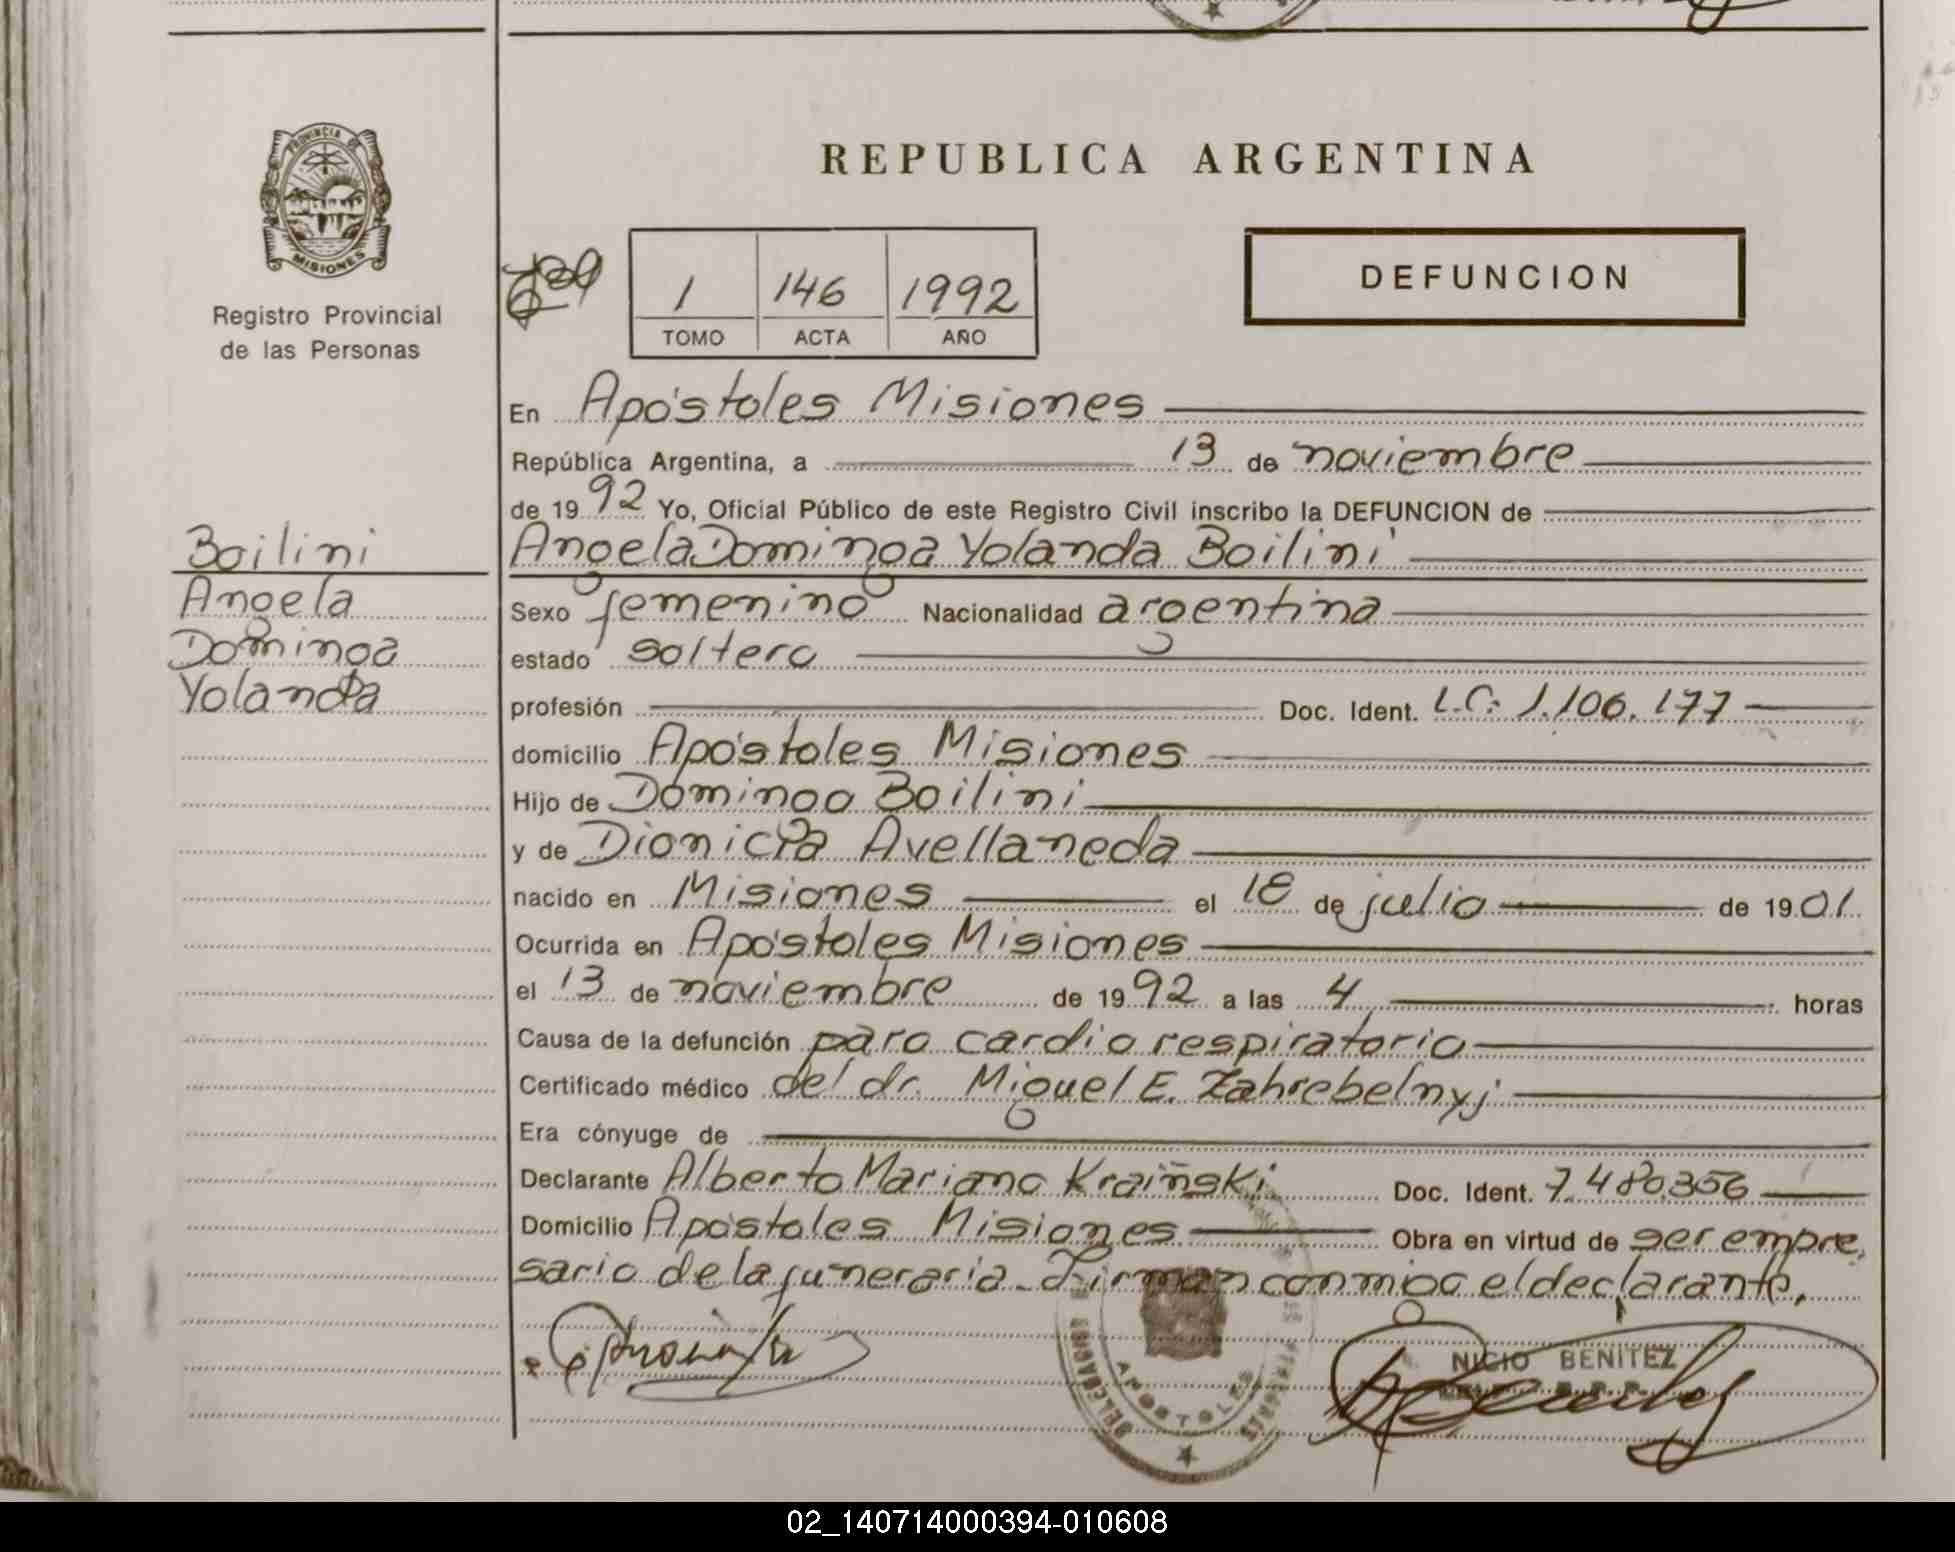 PROVINCIA DE
MISIONES
Registro Provincial
de las Personas
REPUBLICA ARGENTINA
1 146 1992
TOMO ACTA AÑO
DEFUNCION
En Apóstoles Misiones
República Argentina, a 13 de noviembre
de 1992 Yo, Oficial Público de este Registro Civil inscribo la DEFUNCION de
Boilini
Angela Dominga Yolanda Boilini
Angela
Dominga
Yolanda
Sexo femenino Nacionalidad argentina
estado soltera
profesión Doc. Ident. L.C. 1.106.177
domicilio Apóstoles Misiones
Hijo de Domingo Boilini
y de Dionicia Avellaneda
nacido en Misiones el 18 de julio de 1901
Ocurrida en Apóstoles Misiones
el 13 de noviembre de 1992 a las 4 horas
Causa de la defunción paro cardio respiratorio
Certificado médico del dr. Miguel E. Zahrebelnyj
Era cónyuge de
Declarante Alberto Mariano Kraiñski Doc. Ident. 7.480.356
Domicilio Apóstoles Misiones Obra en virtud de ser empre
sario de la funeraria. Firman conmigo el declarante.
NICIO BENITEZ
APOSTOLES
02_140714000394-010608